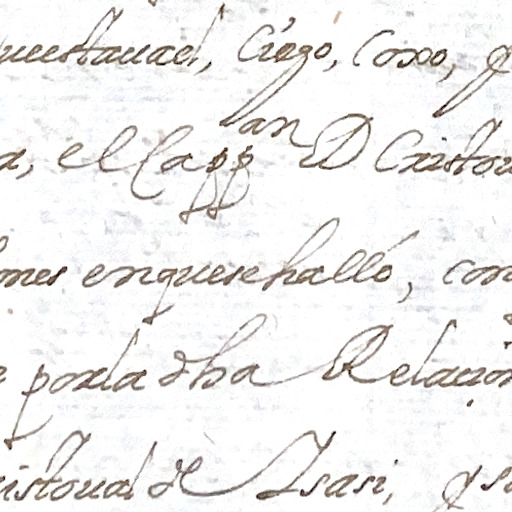 questauael, Ciego, Coxo, y
a, el Capp.an D Cristou
ones enquesehalló, con
e porla dha Relacion
ristoual de Isasi, y su